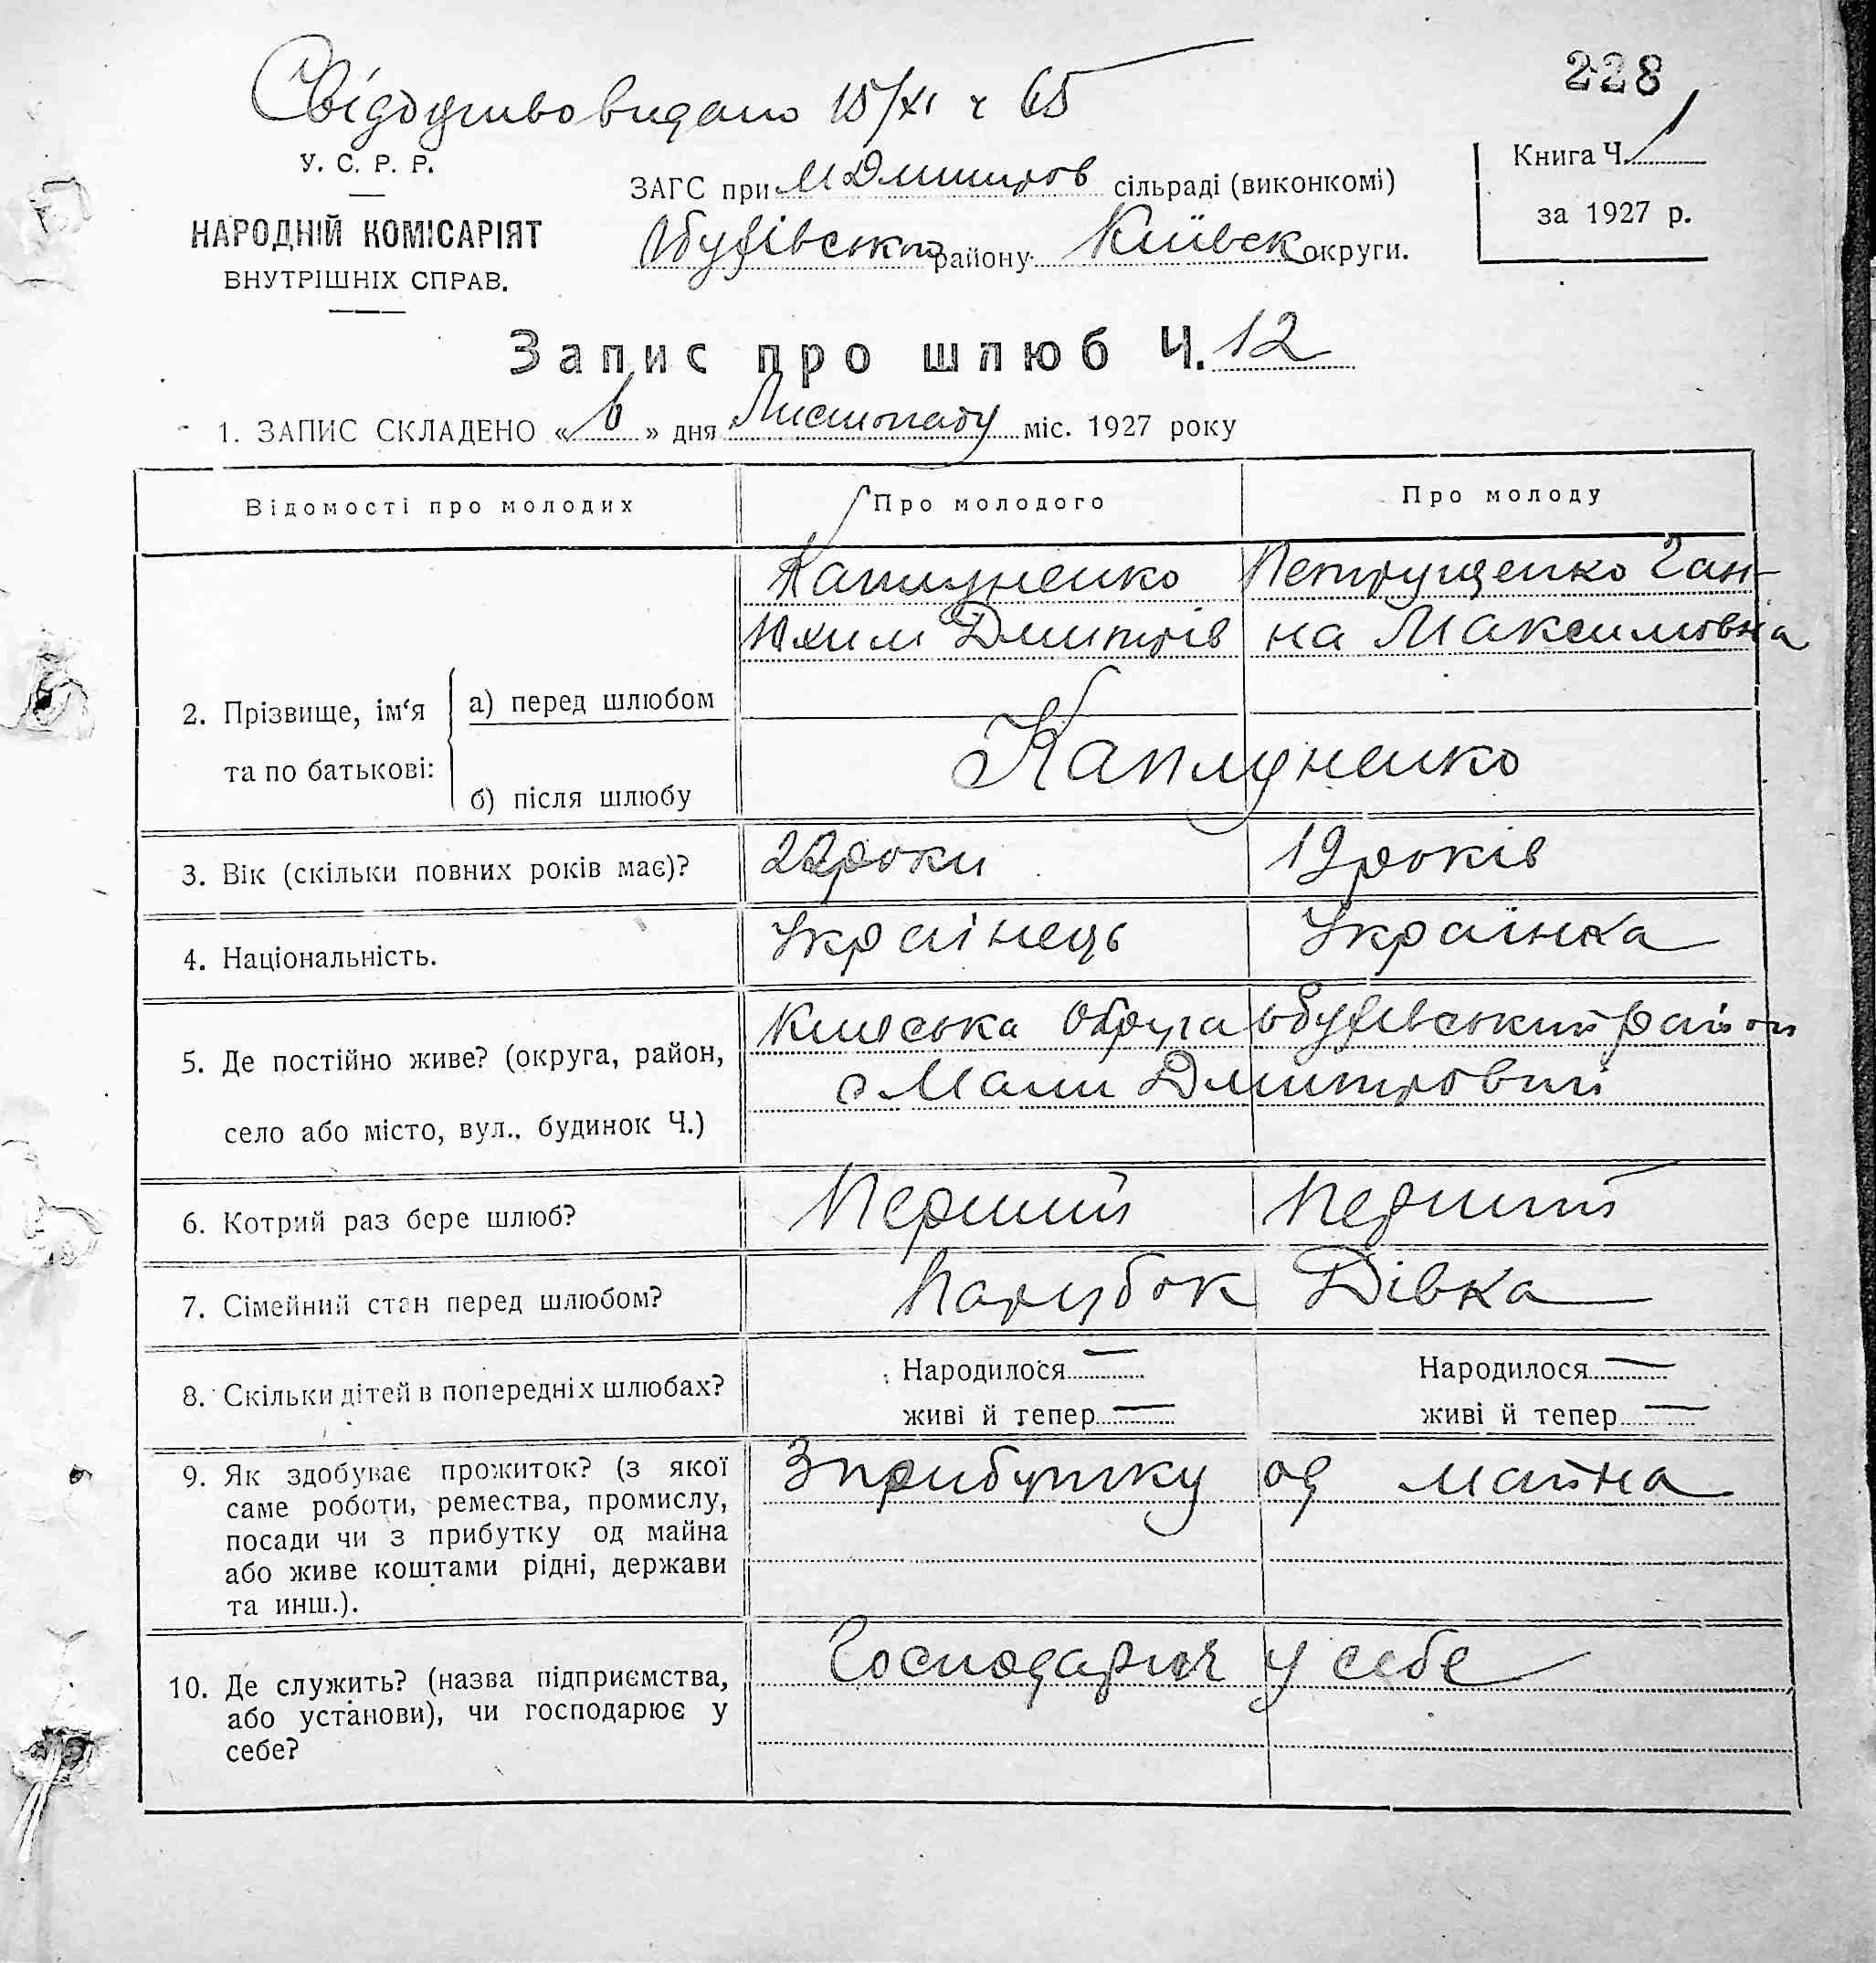 228
Свідоцтво видано 15/XI ч 65
У. С. Р. Р.
НАРОДНІЙ КОМІСАРІЯТ
ВНУТРІШНІХ СПРАВ.
ЗАГС при М Дмитров сільраді (виконкомі)
Обухівськ району Київск округи.
Книга Ч. 1
за 1927 р.
Запис про шлюб Ч. 12
1. ЗАПИС СКЛАДЕНО « » дня Листопаду міс. 1927 року
Відомості про молодих Про молодого Про молоду
Каплуненко Петрущенко Ган-
Юхим Дмитрів на Максимовна
2. Прізвище, ім'я та по батькові:
а) перед шлюбом
б) після шлюбу
Каплуненко
3. Вік (скільки повних років має)? 22 роки 19 років
4. Національність. Украінець Українка
5. Де постійно живе? (округа, район,
село або місто, вул., будинок Ч.)
Киівська округа Обухівський район
с Мали Дмитровичі
6. Котрий раз бере шлюб? Перший Перший
7. Сімейний стан перед шлюбом? Парубок Дівка
8. Скільки дітей в попередніх шлюбах?
Народилося — Народилося —
живі й тепер — живі й тепер —
9. Як здобуває прожиток? (з якої
саме роботи, ремества, промислу,
посади чи з прибутку од майна
або живе коштами рідні, держави
та инш.).
З прибутку од майна
10. Де служить? (назва підприємства,
або установи), чи господарює у
себе?
у себе